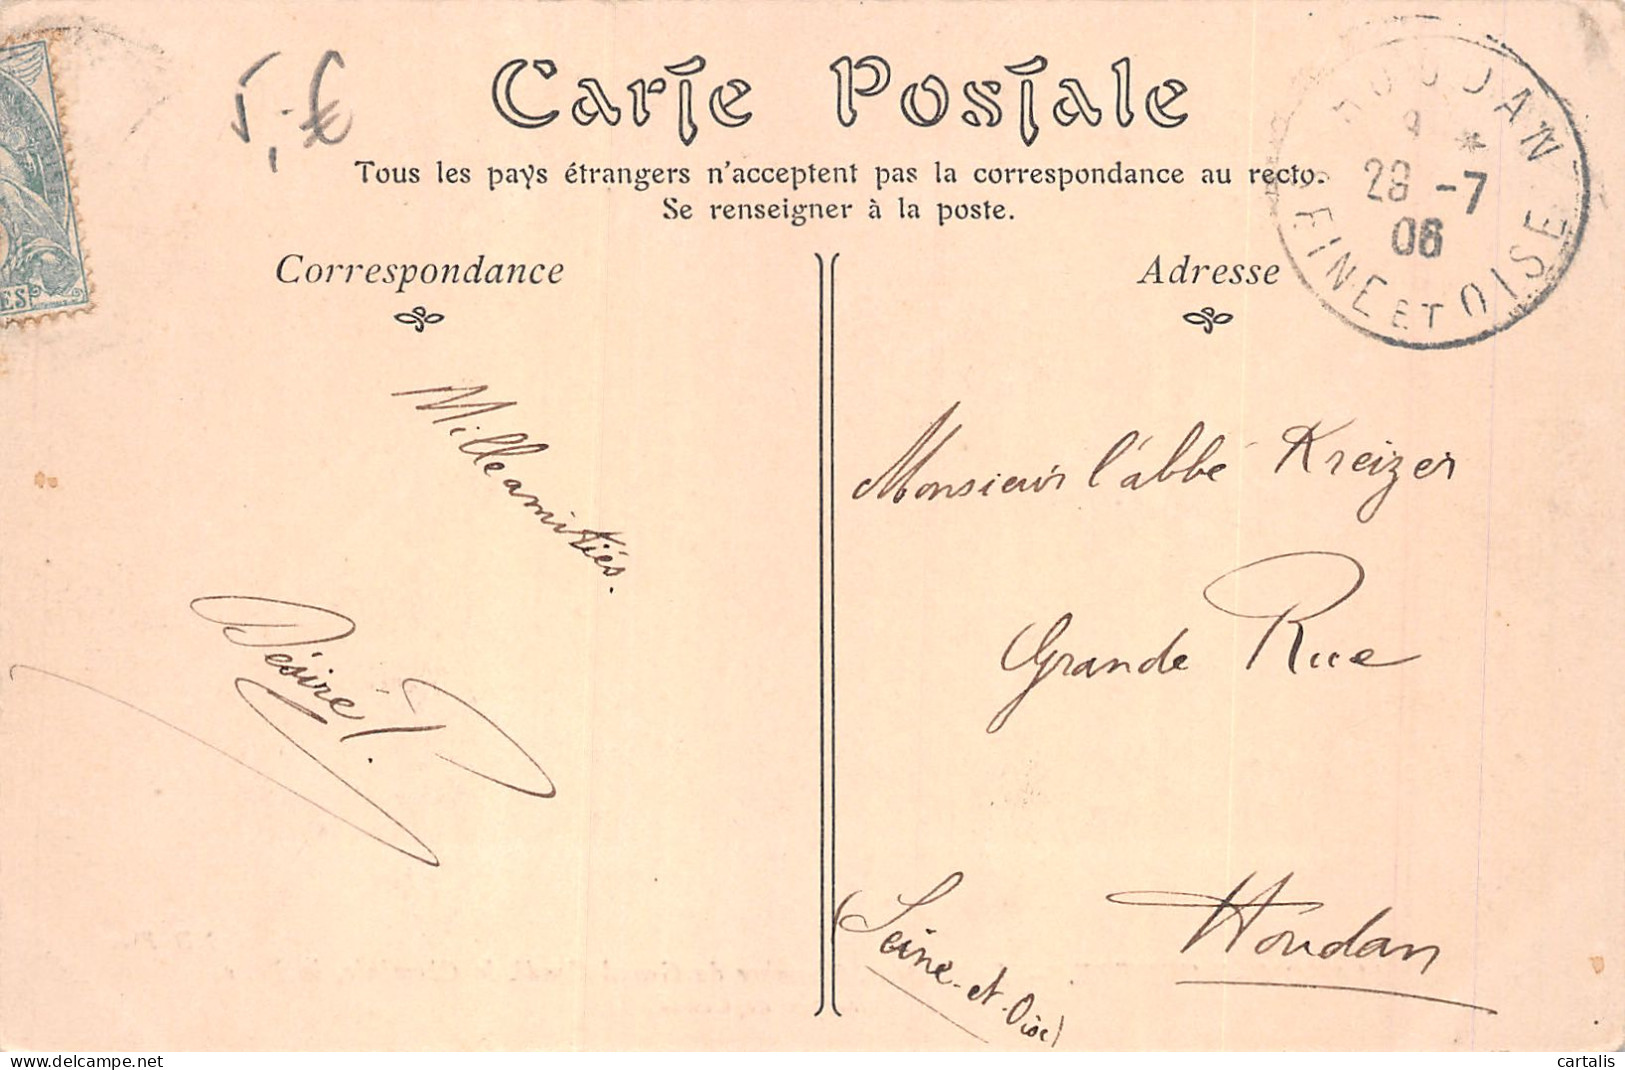 Carte Postale
Tous les pays étrangers n'acceptent pas la correspondance au recto.
Se renseigner à la poste.
Correspondance
Adresse
HOUDAN
* 
28 -7
06
SEINE ET OISE
ES
5,-€
Mille amitiés.
Désiré
Monsieur l'abbé Kreizer
Grande Rue
Houdan
(Seine-et-Oise)
www.delcampe.net
cartalis